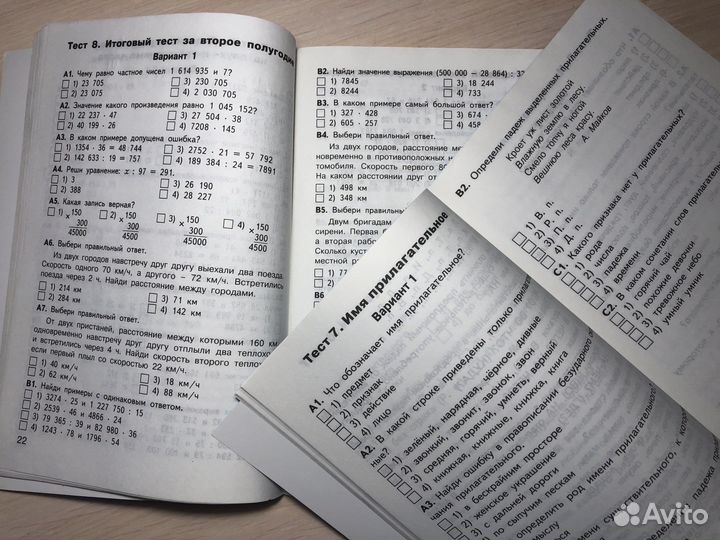 Тест 8. Итоговый тест за второе полугодие
Вариант 1
А1. Чему равно частное чисел 1 614 935 и 7?
1) 23 705 3) 230 705
2) 23 075 4) 2 030 705
А2. Значение какого произведения равно 1 045 152?
1) 22 237 · 47 3) 27 504 · 38
2) 40 199 · 26 4) 7208 · 145
А3. В каком примере допущена ошибка?
1) 1354 · 36 = 48 744 3) 2752 · 21 = 57 792
2) 142 633 : 19 = 757 4) 189 384 : 24 = 7891
А4. Реши уравнение: x : 97 = 291.
1) 3 3) 26 190
2) 388 4) 28 227
А5. Какая запись верная?
1) × 150 2) × 150 3) × 150 4) × 150
300 300 300 300
45000 4500 45000 45000
А6. Выбери правильный ответ.
Из двух городов навстречу друг другу выехали два поезда.
Скорость одного 70 км/ч, а другого – 72 км/ч. Встретились
поезда через 2 ч. Найди расстояние между городами.
1) 214 км 3) 71 км
2) 284 км 4) 142 км
А7. Выбери правильный ответ.
От двух пристаней, расстояние между которыми 160 км,
одновременно навстречу друг другу отплыли два теплохода
и встретились через 4 ч. Найди скорость второго теплохода,
если первый плыл со скоростью 22 км/ч.
1) 40 км/ч 3) 18 км/ч
2) 62 км/ч 4) 88 км/ч
В1. Найди примеры с одинаковым ответом.
1) 3274 · 25 и 1 227 750 : 15
2) 2539 · 46 и 4866 · 24
3) 79 65 : 39 и 82 980 : 36
4) 1243 · 78 и 1796 · 54
22
В2. Найди значение выражения (500 000 – 28 864) : 32
1) 7845 3) 18 244
2) 8244 4) 733
В3. В каком примере самый большой ответ?
1) 327 · 428 3) 674
2) 605 · 257 4) 458
В4. Выбери правильный ответ.
Из двух городов, расстояние ме
новременно в противоположных н
томобиля. Скорость первого 80
На каком расстоянии друг от
1) 498 км
2) 348 км
В5. Выбери правильный
Двум бригадам
сирени. Первая б
а вторая рабо
Сколько куст
местной р
1) 77
2)
В6
Тест 7. Имя прилагательное
Вариант 1
А1. Что обозначает имя прилагательное?
1) предмет
2) признак
3) действие
4) лицо
А2. В какой строке приведены только прилагательные?
1) зелёный, нарядная, чёрное, дивные
2) звонный, звонит, звонок, звон
3) средняя, горячий, умнеть, верный
4) книжная, книжные, книжка, книга
А3. Найди ошибку в правописании безударного
чания прилагательного.
1) в бескрайним просторе
2) женское украшение
3) с дальней дороги
4) по сыпучим пескам
определить род имени прилагательного?
ени существительного, к которо
мыслу
В2. Определи падеж выделенных прилагательных.
Кроет уж лист золотой
Влажную землю в лесу.
Смело топчу я ногой
Вешнюю леса красу.
А. Майков
1) В. п.
2) Р. п.
3) П. п.
4) Д. п.
С1. Какого признака нет у прилагательных?
1) рода
2) числа
3) падежа
4) времени
С2. В каком сочетании слов прилагательное
1) горячий чай
2) похожие девочки
3) тревожное небо
4) умный умник
Avito